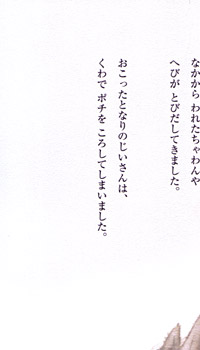 なかから われたちゃわんや
へびが とびだしてきました。
おこったとなりのじいさんは、
くわで ポチを ころしてしまいました。